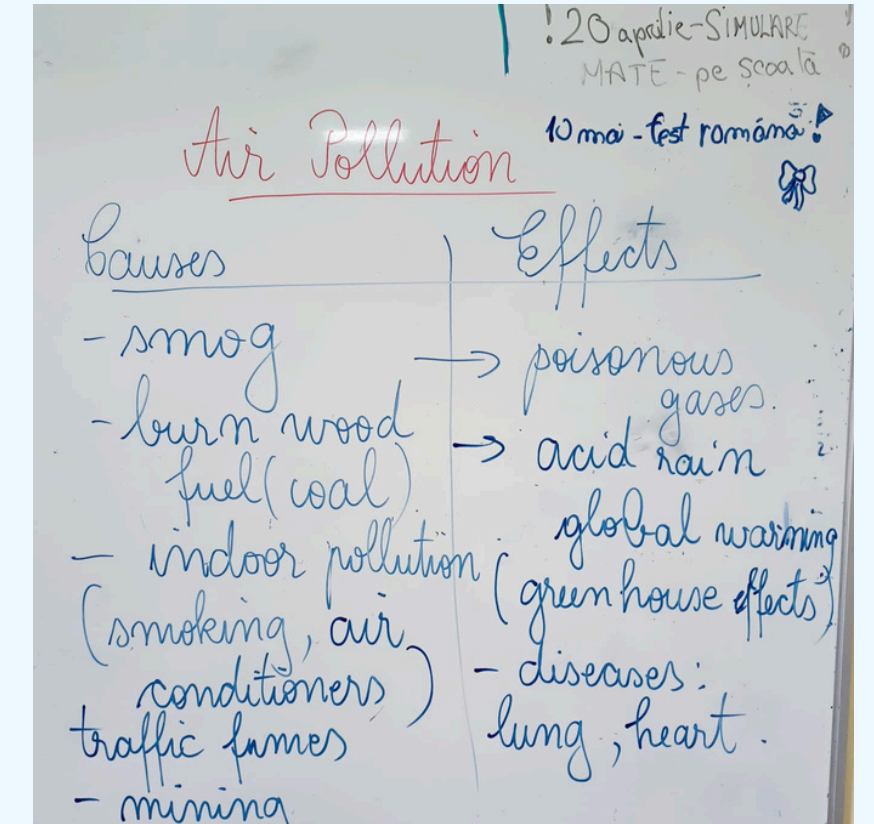 ! 20 aprilie - SIMULARE
MATE - pe școală
10 mai - test română!
Air Pollution
Causes
- smog
- burn wood
fuel (coal)
- indoor pollution
(smoking, air
conditioners)
traffic fumes
- mining
Effects
→ poisonous
gases.
→ acid rain
global warming
(greenhouse effects)
- diseases:
lung, heart.